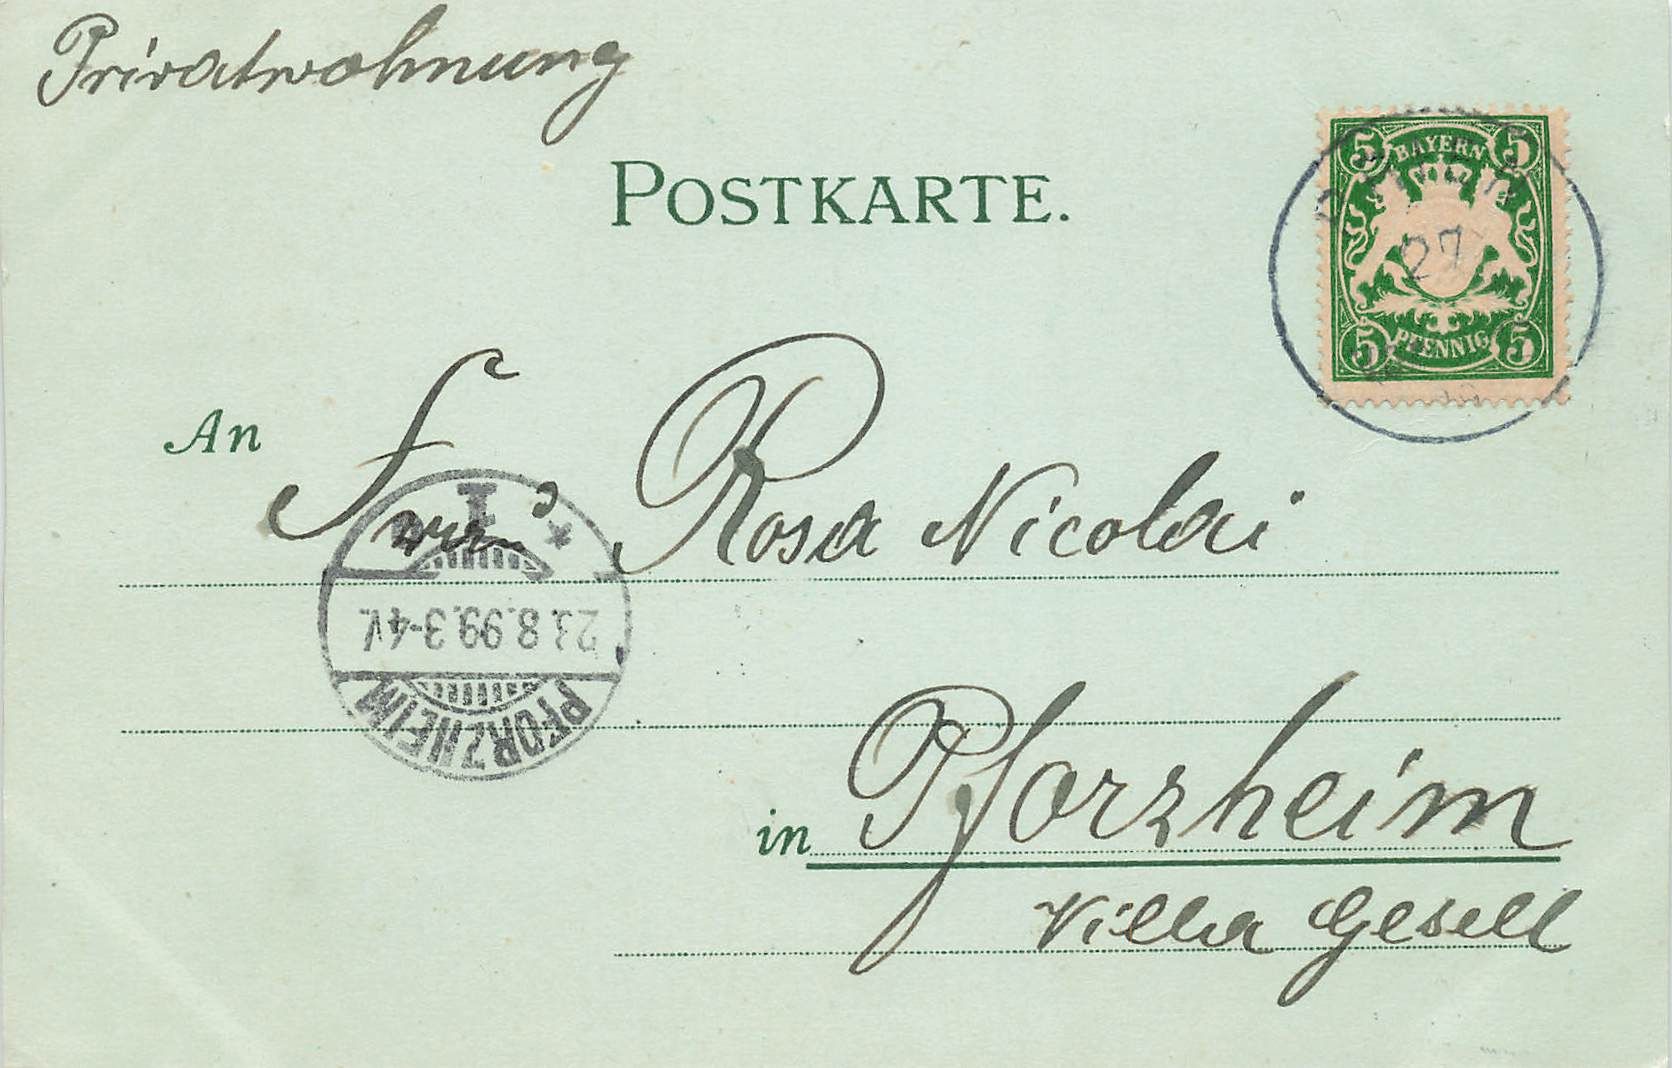 Privatwohnung
POSTKARTE.
5 BAYERN 5
27
5 PFENNIG 5
An Frau Rosa Nicolai
1
23.8.99.3-4V.
PFORZHEIM
in Pforzheim
Villa Gesell